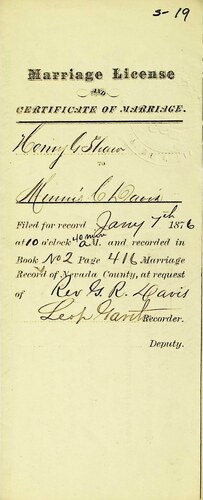 3-19
Marriage License
AND
CERTIFICATE OF MARRIAGE.
Henry G Shaw
TO
Minnie C Davis
Filed for record Jany 7th 1876
at 10 o'clock 40 min A M. and recorded in
Book No 2 Page 416 Marriage
Record of Nevada County, at request
of Rev G. R. Davis
Leop Garthe
Recorder.
Deputy.